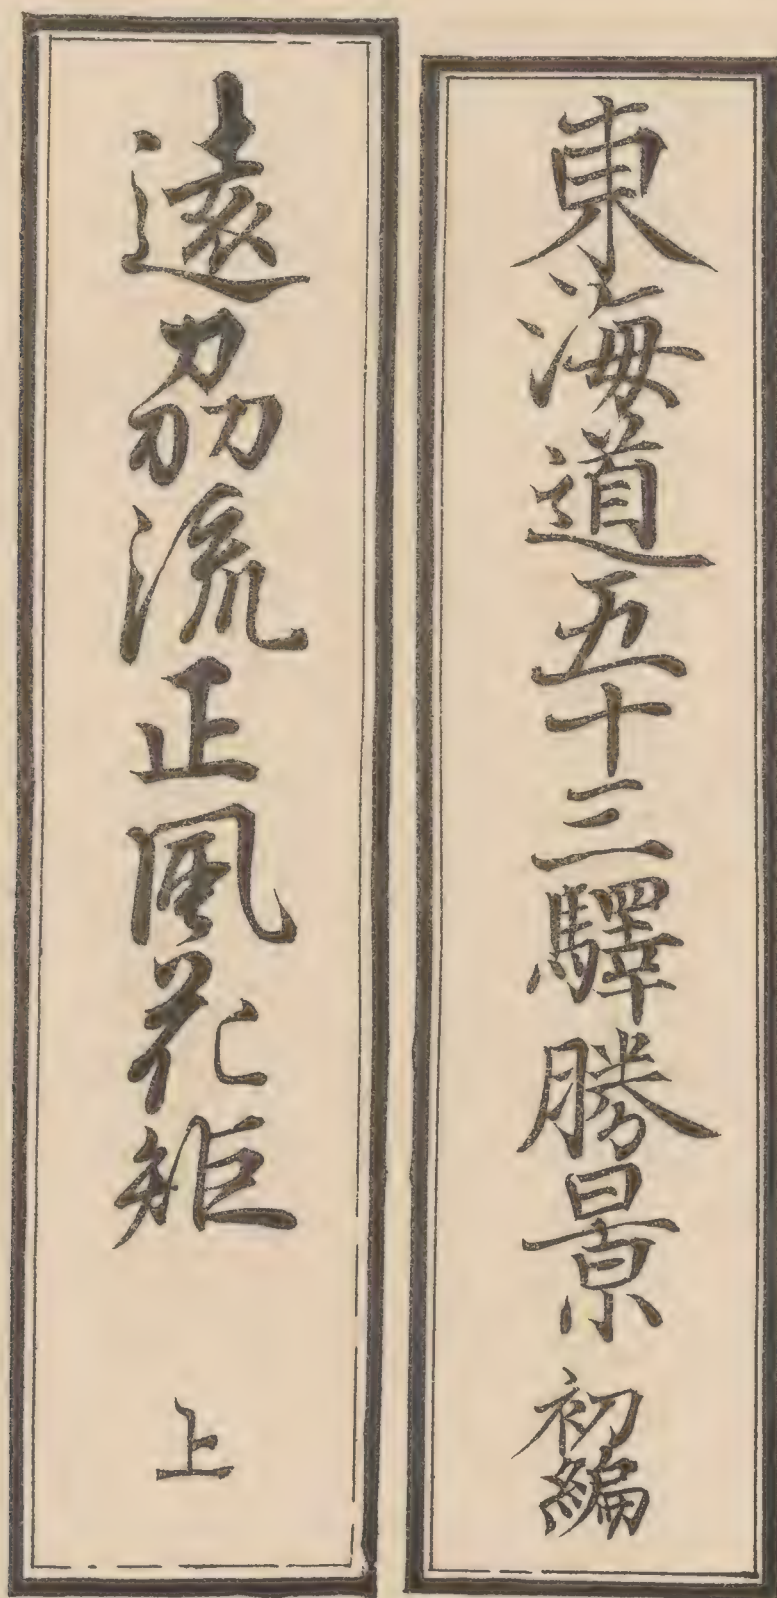 東海道五十三驛勝景 初編
遠刕流正風花矩 上